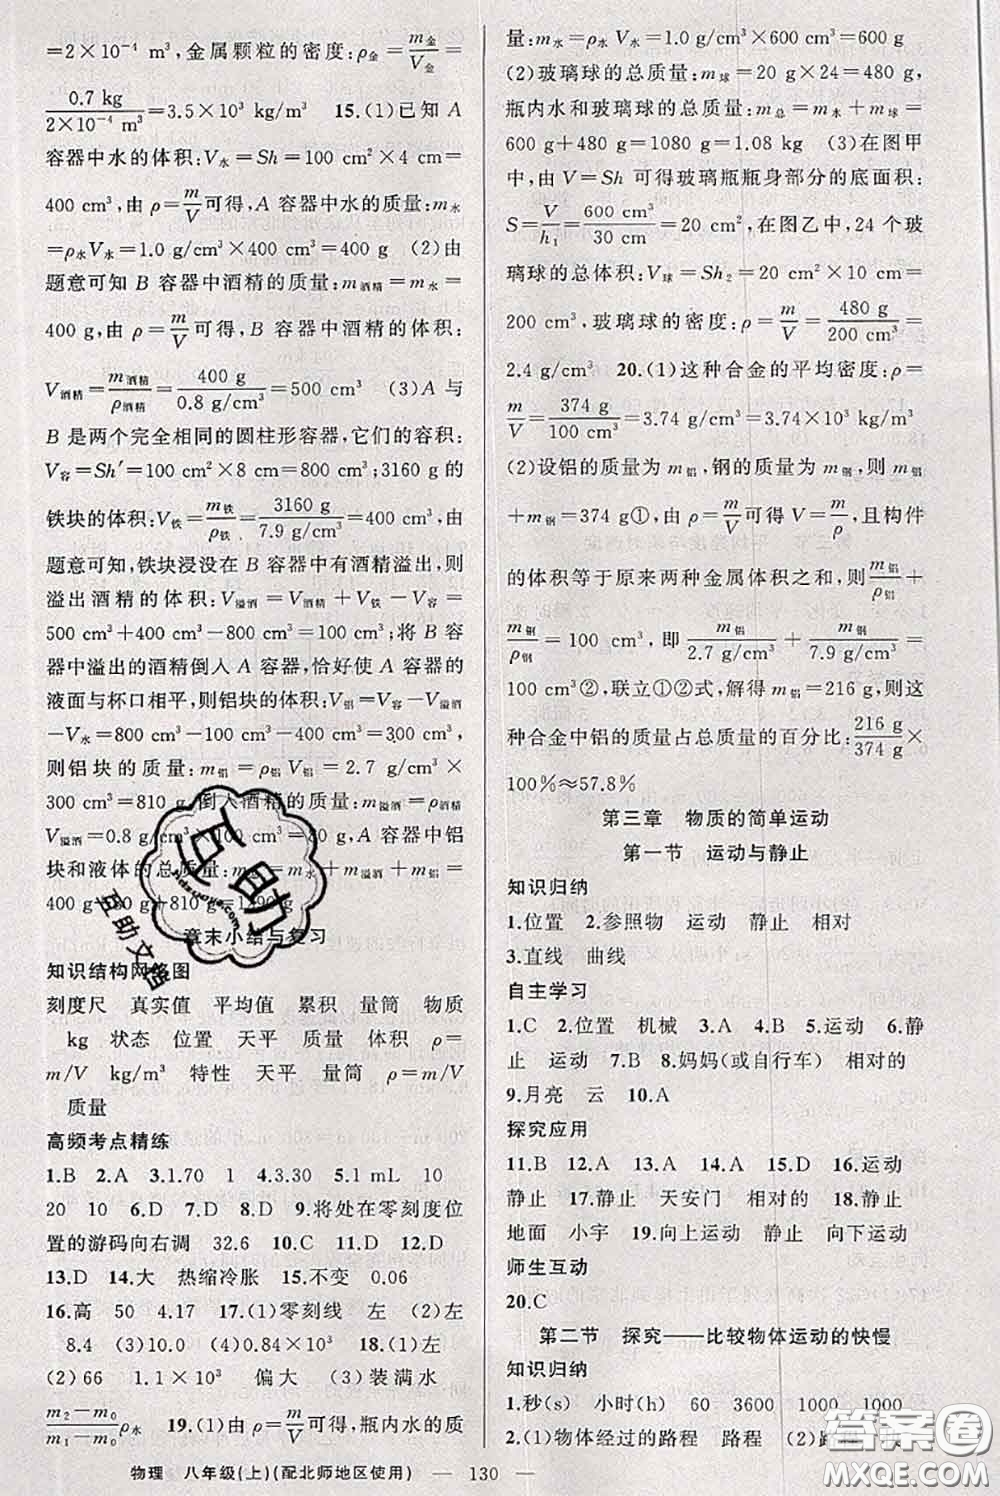 =2×10⁻⁴ m³,金属颗粒的密度:ρ金=m金/V金=
0.7 kg/2×10⁻⁴ m³=3.5×10³ kg/m³ 15.(1)已知 A
容器中水的体积:V水=Sh=100 cm²×4 cm=
400 cm³,由 ρ=m/V可得,A 容器中水的质量:m水
=ρ水V水=1.0 g/cm³×400 cm³=400 g (2)由
题意可知 B 容器中酒精的质量:m酒精=m水=
400 g,由 ρ=m/V可得,B 容器中酒精的体积:
V酒精=m酒精/ρ酒精=400 g/0.8 g/cm³=500 cm³ (3)A 与
B 是两个完全相同的圆柱形容器,它们的容积:
V容=Sh′=100 cm²×8 cm=800 cm³;3160 g 的
铁块的体积:V铁=m铁/ρ铁=3160 g/7.9 g/cm³=400 cm³,由
题意可知,铁块浸没在 B 容器中有酒精溢出,则
溢出酒精的体积:V溢酒=V酒精+V铁-V容=
500 cm³+400 cm³-800 cm³=100 cm³;将 B 容
器中溢出的酒精倒入 A 容器,恰好使 A 容器的
液面与杯口相平,则铝块的体积:V铝=V容-V溢酒
-V水=800 cm³-100 cm³-400 cm³=300 cm³,
则铝块的质量:m铝=ρ铝V铝=2.7 g/cm³×
300 cm³=810 g,倒入酒精的质量:m溢酒=ρ酒精
V溢酒=0.8 g/cm³×100 cm³=80 g,A 容器中铝
块和液体的总质量:m总=m水+m溢酒+m铝=
400 g+80 g+810 g=1290 g
章末小结与复习
知识结构网络图
刻度尺 真实值 平均值 累积 量筒 物质
kg 状态 位置 天平 质量 体积 ρ=
m/V kg/m³ 特性 天平 量筒 ρ=m/V
质量
高频考点精练
1.B 2.A 3.1.70 1 4.3.30 5.1 mL 10
20 10 6.D 7.D 8.D 9.将处在零刻度位
置的游码向右调 32.6 10.C 11.D 12.D
13.D 14.大 热缩冷胀 15.不变 0.06
16.高 50 4.17 17.(1)零刻线 左 (2)左
8.4 (3)10.0 (4)0.8×10³ 18.(1)左
(2)66 1.1×10³ 偏大 (3)装满水
m₂-m₀/m₁-m₀ρ水 19.(1)由 ρ=m/V可得,瓶内水的质
量:m水=ρ水V水=1.0 g/cm³×600 cm³=600 g
(2)玻璃球的总质量:m球=20 g×24=480 g,
瓶内水和玻璃球的总质量:m总=m水+m球=
600 g+480 g=1080 g=1.08 kg (3)在图甲
中,由 V=Sh 可得玻璃瓶瓶身部分的底面积:
S=V/h₁=600 cm³/30 cm=20 cm²,在图乙中,24 个玻
璃球的总体积:V球=Sh₂=20 cm²×10 cm=
200 cm³,玻璃球的密度:ρ=m/V=480 g/200 cm³=
2.4 g/cm³ 20.(1)这种合金的平均密度:ρ=
m/V=374 g/100 cm³=3.74 g/cm³=3.74×10³ kg/m³
(2)设铝的质量为 m铝,钢的质量为 m钢,则 m铝
+m钢=374 g①,由 ρ=m/V可得 V=m/ρ,且构件
的体积等于原来两种金属体积之和,则m铝/ρ铝+
m钢/ρ钢=100 cm³,即m铝/2.7 g/cm³+m钢/7.9 g/cm³=
100 cm³②,联立①②式,解得 m铝=216 g,则这
种合金中铝的质量占总质量的百分比:216 g/374 g×
100%≈57.8%
第三章 物质的简单运动
第一节 运动与静止
知识归纳
1.位置 2.参照物 运动 静止 相对
3.直线 曲线
自主学习
1.C 2.位置 机械 3.A 4.B 5.运动 6.静
止 运动 7.B 8.妈妈(或自行车) 相对的
9.月亮 云 10.A
探究应用
11.B 12.A 13.A 14.A 15.D 16.运动
静止 17.静止 天安门 相对的 18.静止
地面 小宇 19.向上运动 静止 向下运动
师生互动
20.C
第二节 探究——比较物体运动的快慢
知识归纳
1.秒(s) 小时(h) 60 3600 1000 1000
2.(1)物体经过的路程 路程 (2)路程
物理 八年级(上)(配北师地区使用) — 130 —
互助
互助文档
答案圈
MXQE.COM